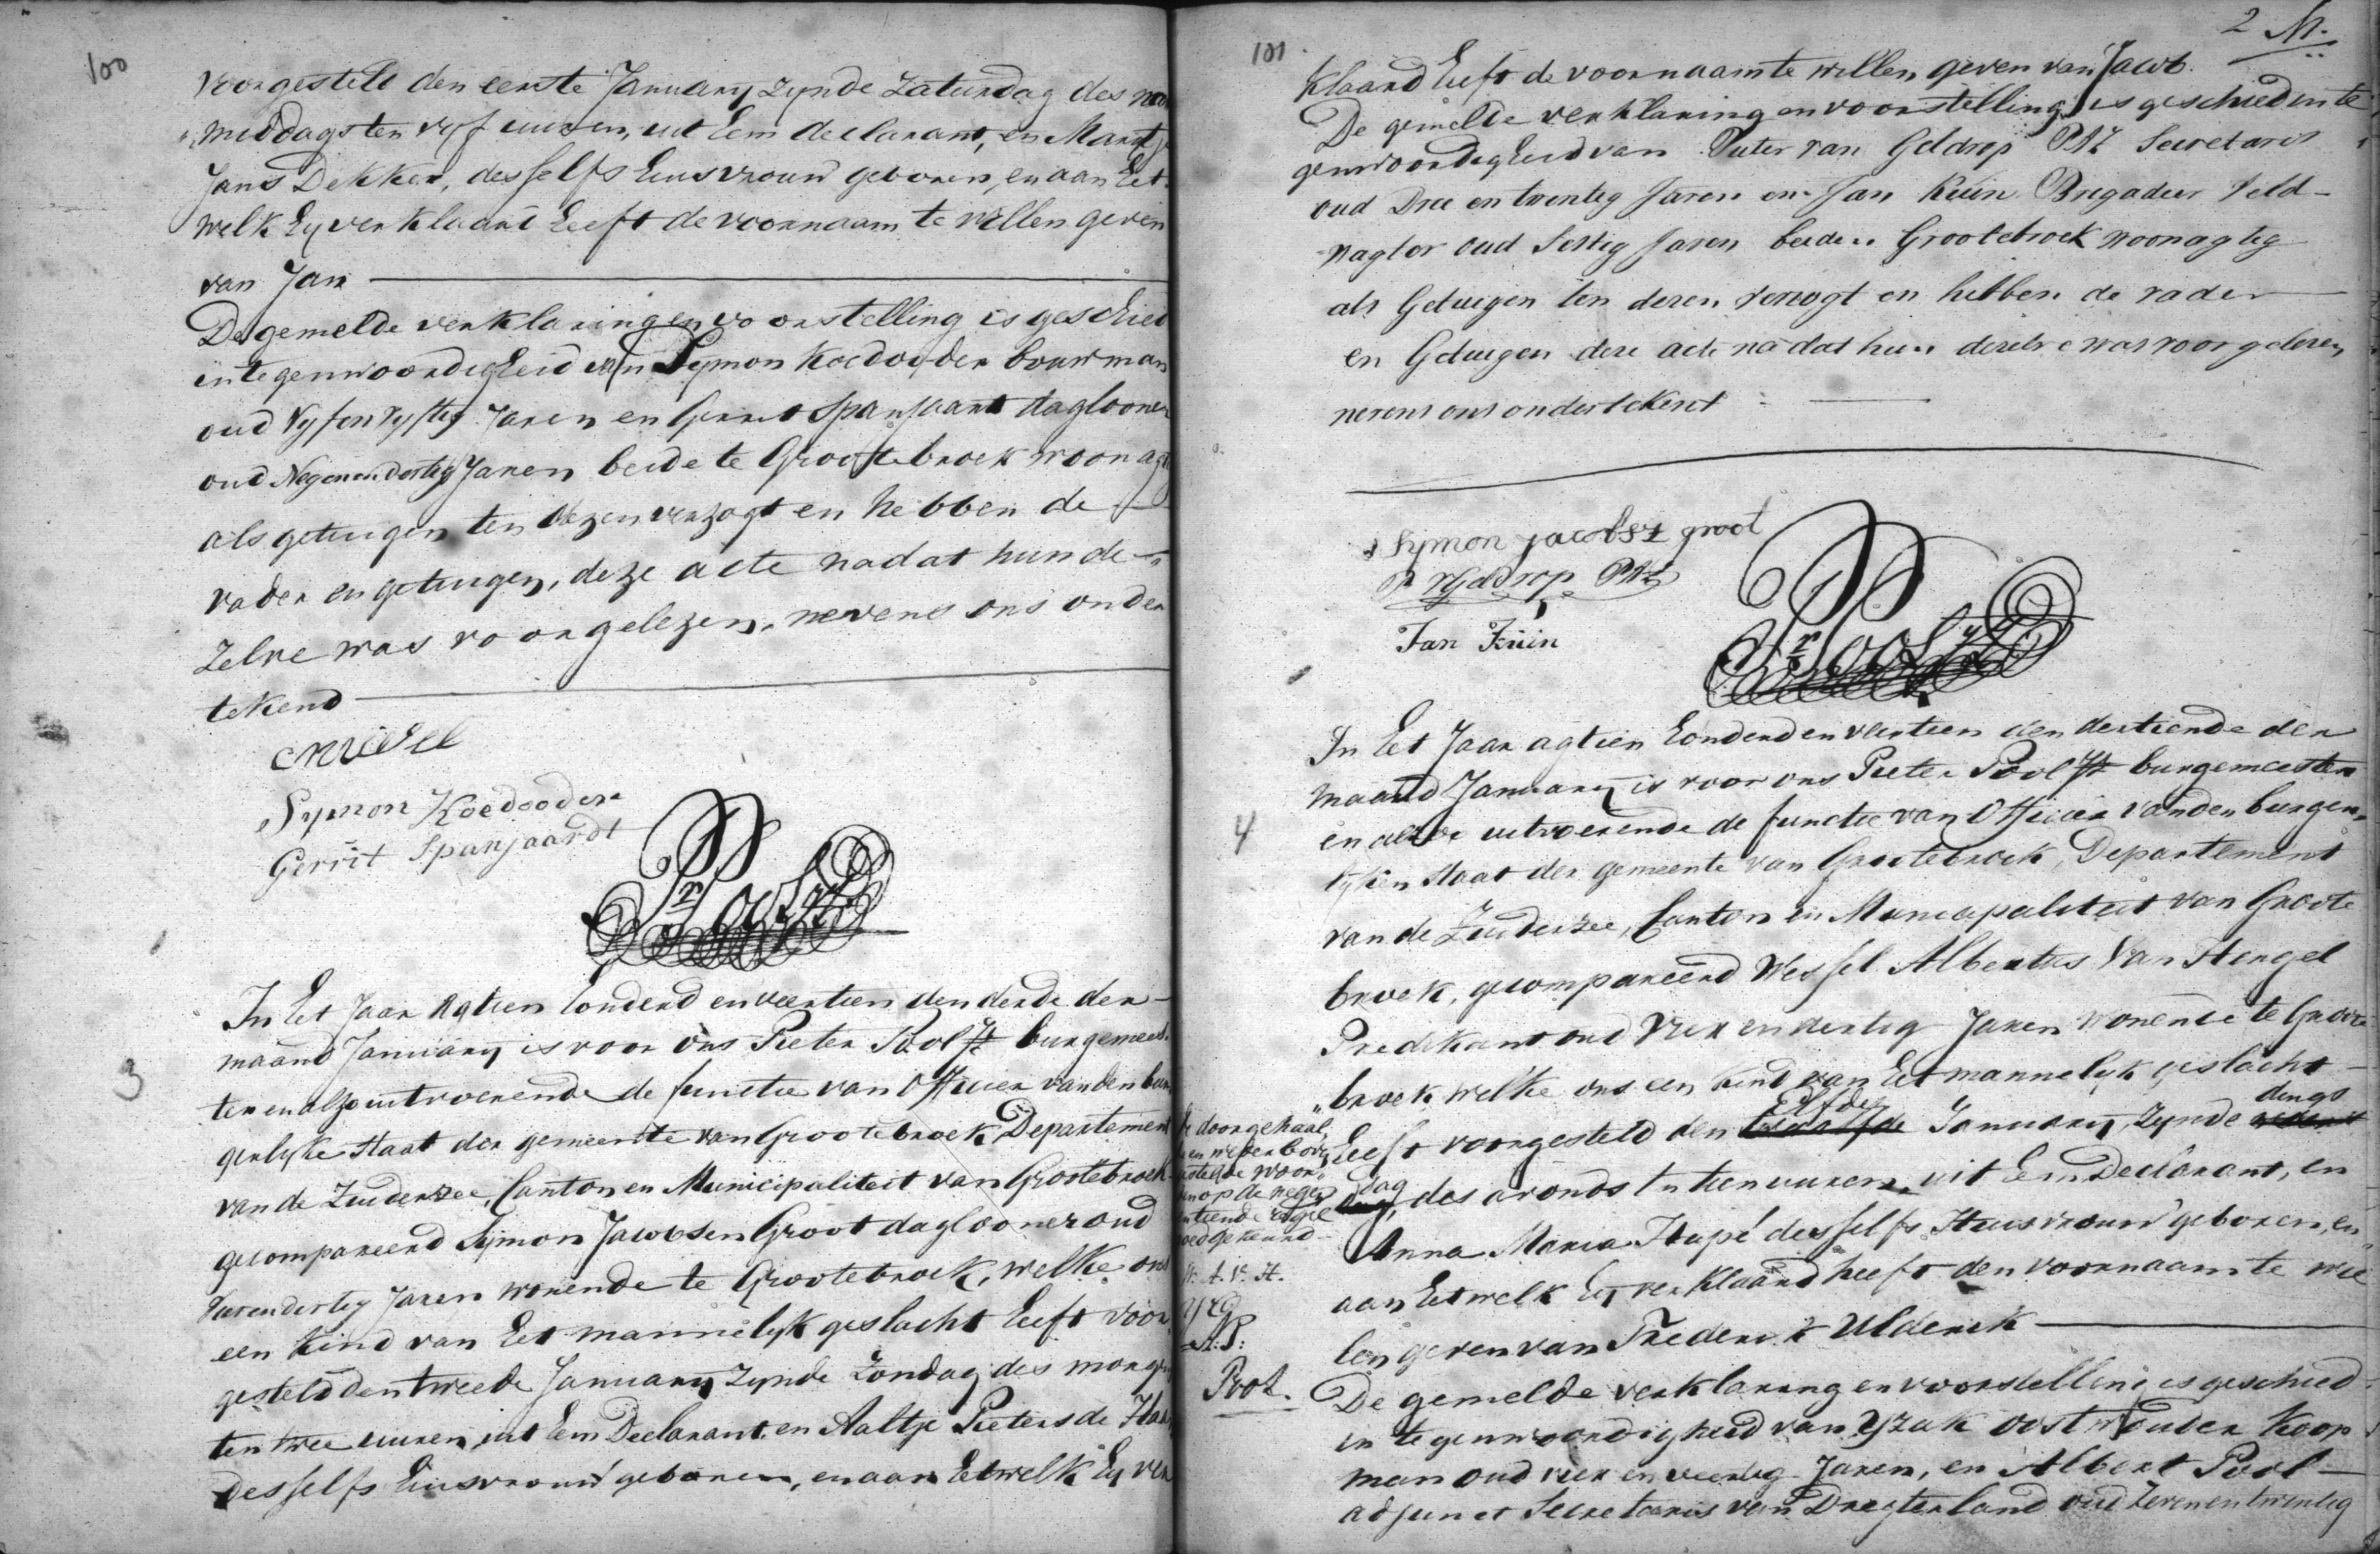 100
voorgesteld den eerste January zynde Zaturdag des na
middags ten vyf uuren, uit hem declarant, en Mart
Jans Dekker, desselfs huisvrouw geboren, en aan het
welk hy verklaart heeft de voornaam te willen geven
van Jan
De gemelde verklaring en voorstelling is geschied
in tegenwoordigheid van Symon Koedooder bouwman
oud vyfenvyftig Jaren en Gerrit Spanjaart daglooner
oud Negenendertig Jaren beide te Grootebroek woonag
als getuigen ten dezen verzogt en hebben de
vader en getuigen, deze acte nadat hun de
zelve was voorgelezen, nevens ons onder
tekend
Symon Koedooder
Gerrit Spanjaardt
Pr Pool
3
In het Jaar Agtien honderd en veertien den derde der
maand January is voor ons Pieter Pool burgemees
ter en alzo uitvoerende de functie van Officier van den bur
gerlyke Staat der gemeente van Grootebroek Departement
van de Zuiderzee, Canton en Municipaliteit van Grootebroek
gecompareerd Symon Jacobsen Groot daglooner oud
vierendertig Jaren wonende te Grootebroek, welke ons
een kind van het mannelyk geslacht heeft voor
gesteld den tweede January zynde Zondag des morgen
ten twee uuren, uit hem Declarant en Aaltje Pieters de Haa
desselfs huisvrouw geboren, en aan hetwelk hy ver
101
2 M.
klaard heeft de voornaam te willen geven van Jacob.
De gemelde verklaring en voorstelling is geschied in te
genwoordigheid van Pieter van Geldrop PAZ Secretaris
oud Drie en twintig Jaren en Jan Kuin Brigadier Veld
wagter oud Sestig Jaren beiden Grootebroek woonagtig
als Getuigen ten dezen verzogt en hebben de vader
en Getuigen deze acte nadat hun dezelve was voorgelezen
nevens ons ondertekent
Symon Jacobsz groot
P v Geldrop PAZ
Jan Kuin
Pr Pool
4
In het Jaar agtien honderd en veertien den dertiende der
maand January is voor ons Pieter Pool burgemeester
en alzo uitvoerende de functie van Officier van den burger
lyken Staat der gemeente van Grootebroek, Departement
van de Zuiderzee, Canton en Municipaliteit van Groote
broek, gecompareerd Wessel Albertus Van Hengel
Predikant oud vier en dertig Jaren wonende te Groote
broek welke ons een kind van het mannelyk geslacht
heeft voorgesteld den Elfde January, zynde dings
dag des avonds ten tien uuren, uit hem Declarant, en
Anna Maria Hupé desselfs Huisvrouw geboren, en
aan hetwelk hy verklaard heeft den voornaam te wil
len geven van Frederik Ulderik
De gemelde verklaring en voorstelling is geschied
in tegenwoordigheid van Yzak Oostwouder Koop
man oud vier en veertig Jaren, en Albert Pool
adjunct Secretaris van Dregterland oud Zevenentwintig
de doorgehaal
en wederbove
stelde woor
en op de negen
tiende regel
oedgekeurd
W. A. V. H.
Y O
A. P.
Pool.